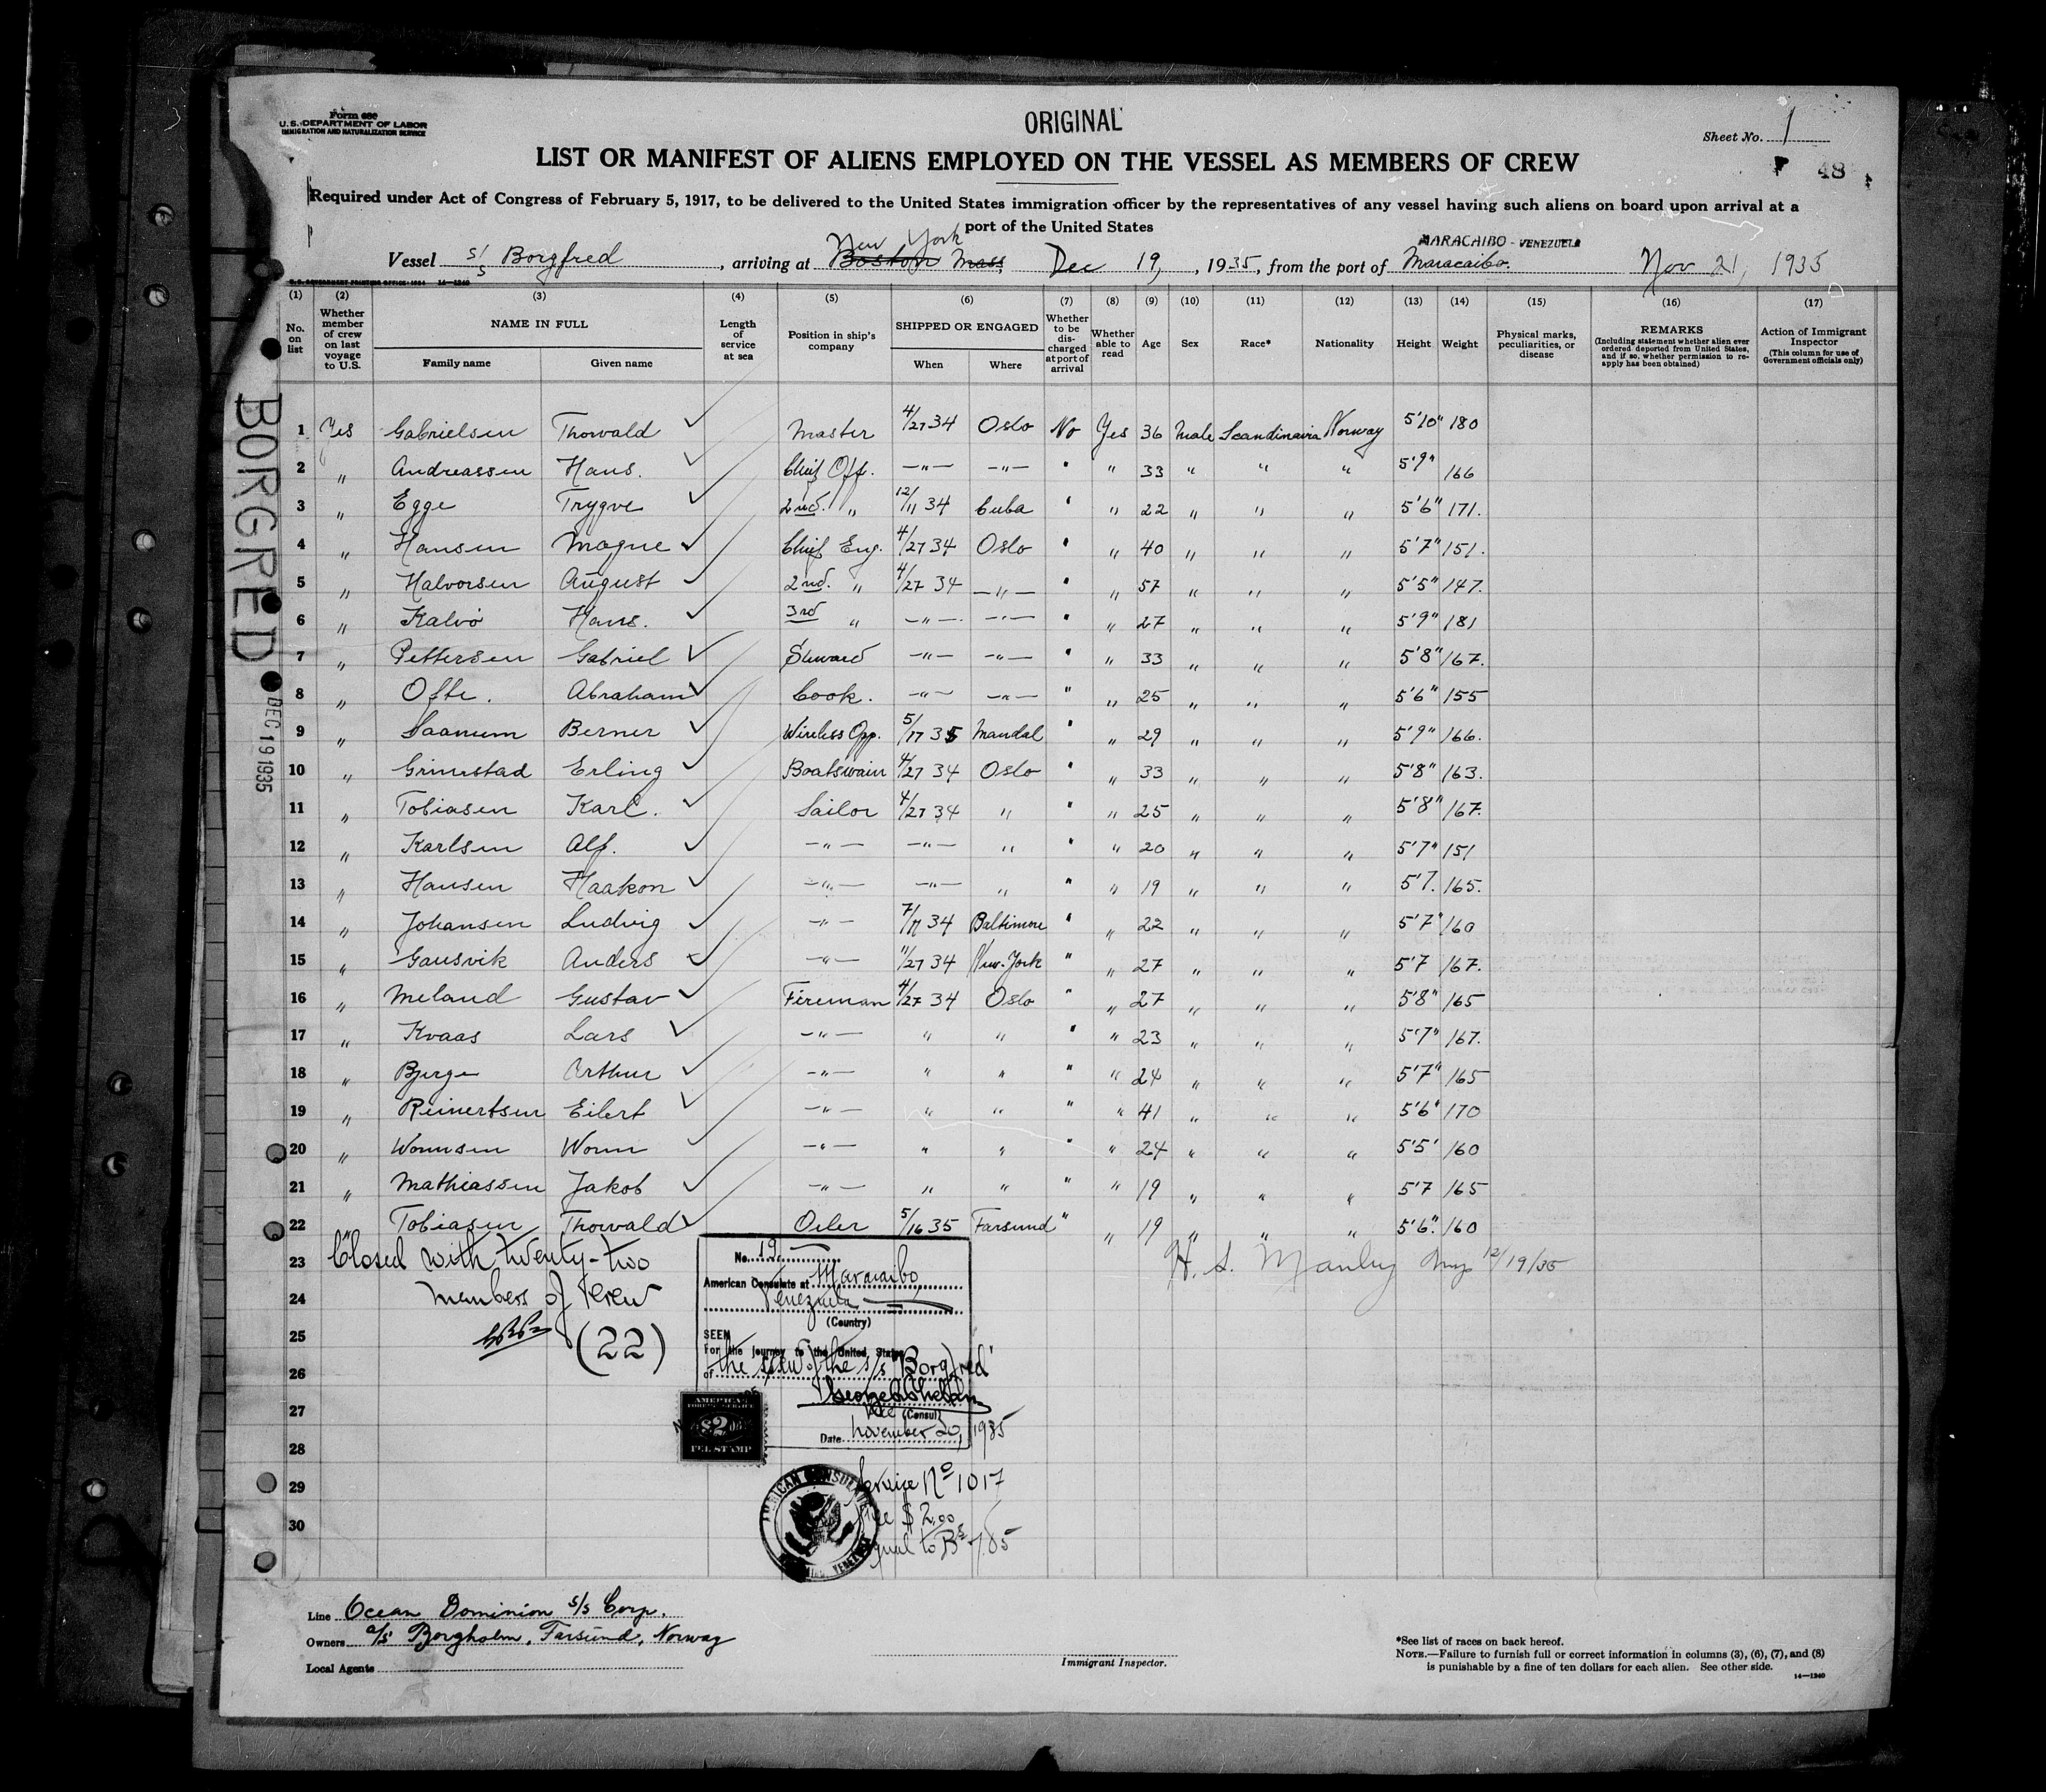 Form 680
U.S. DEPARTMENT OF LABOR
IMMIGRATION AND NATURALIZATION SERVICE
ORIGINAL
Sheet No. 1
48
LIST OR MANIFEST OF ALIENS EMPLOYED ON THE VESSEL AS MEMBERS OF CREW
Required under Act of Congress of February 5, 1917, to be delivered to the United States immigration officer by the representatives of any vessel having such aliens on board upon arrival at a
port of the United States
New York MARACAIBO - VENEZUELA
Vessel s/s Borgfred, arriving at Boston Mass Dec 19, 1935, from the port of Maracaibo. Nov 21, 1935
U.S. GOVERNMENT PRINTING OFFICE: 1934 14—1240
(1) (2) (3) (4) (5) (6) (7) (8) (9) (10) (11) (12) (13) (14) (15) (16) (17)
No. on list Whether member of crew on last voyage to U.S. NAME IN FULL Family name Given name Length of service at sea Position in ship's company SHIPPED OR ENGAGED When Where Whether to be discharged at port of arrival Whether able to read Age Sex Race* Nationality Height Weight Physical marks, peculiarities, or disease REMARKS (Including statement whether alien ever ordered deported from United States, and if so, whether permission to reapply has been obtained) Action of Immigrant Inspector (This column for use of Government officials only)
1 Yes Gabrielsen Thorvald ✓ Master 4/27 34 Oslo No Yes 36 Male Scandinavia Norway 5'10" 180
2 " Andreassen Hans. ✓ Chief Off. —"— —"— " " 33 " " " 5'9" 166
3 " Egge Trygve ✓ 2nd. " 12/11 34 Cuba " " 22 " " " 5'6" 171.
4 " Hansen Magne ✓ Chief Eng. 4/27 34 Oslo " " 40 " " " 5'7" 151.
5 " Halvorsen August ✓ 2nd. " 4/27 34 —"— " " 57 " " " 5'5" 147.
6 " Kalvo Hans. ✓ 3rd " —"— —"— " " 27 " " " 5'9" 181
7 " Pettersen Gabriel ✓ Steward —"— —"— " " 33 " " " 5'8" 167.
8 " Ofte. Abraham ✓ Cook. —"— —"— " " 25 " " " 5'6" 155
9 " Saanum Berner ✓ Wireless Opp. 5/17 35 Mandal " " 29 " " " 5'9" 166.
10 " Grimstad Erling ✓ Boatswain 4/27 34 Oslo " " 33 " " " 5'8" 163.
11 " Tobiasen Karl. ✓ Sailor 4/27 34 " " " 25 " " " 5'8" 167.
12 " Karlsen Alf. ✓ —"— —"— " " " 20 " " " 5'7" 151
13 " Hansen Haakon ✓ —"— —"— " " " 19 " " " 5'7. 165.
14 " Johansen Ludvig ✓ —"— 7/17 34 Baltimore " " 22 " " " 5'7" 160
15 " Gausvik Anders ✓ —"— 11/27 34 New-York " " 27 " " " 5'7 167.
16 " Meland Gustav ✓ Fireman 4/27 34 Oslo " " 27 " " " 5'8" 165
17 " Kvaas Lars ✓ —"— " " " " 23 " " " 5'7" 167.
18 " Bjerge Arthur ✓ —"— " " " " 24 " " " 5'7" 165
19 " Reinertsen Eilert ✓ —"— " " " " 41 " " " 5'6" 170
20 " Wormsen Worm ✓ —"— " " " " 24 " " " 5'5' 160
21 " Mathiassen Jakob ✓ —"— " " " " 19 " " " 5'7 165
22 " Tobiasen Thorvald ✓ Oiler 5/16 35 Farsund " " 19 " " " 5'6". 160
23 Closed with twenty-two
24 members of crew
25 (22)
26
27
28
29
30
H. S. Manley Insp 12/19/35
No. 19
American Consulate at Maracaibo,
Venezuela
(Country)
SEEN
For the journey to the United States
of the crew of the s/s "Borgfred"
Vice (Consul)
Date November 20, 1935
AMERICAN
FOREIGN SERVICE
$2.00
FEE STAMP
AMERICAN CONSULATE
VENEZUELA
Service No 1017
Fee $2.00
Equal to Bs 7.85
BORGRED
DEC 19 1935
Line Ocean Dominion s/s Corp.
Owners a/s Borgholm, Farsund, Norway
Local Agents
Immigrant Inspector.
*See list of races on back hereof.
NOTE.—Failure to furnish full or correct information in columns (3), (6), (7), and (8)
is punishable by a fine of ten dollars for each alien. See other side.
14—1240